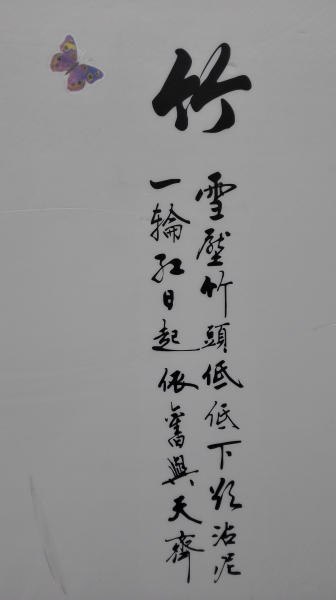 竹
雪壓竹頭低低下欲沾泥
一輪紅日起依舊與天齊